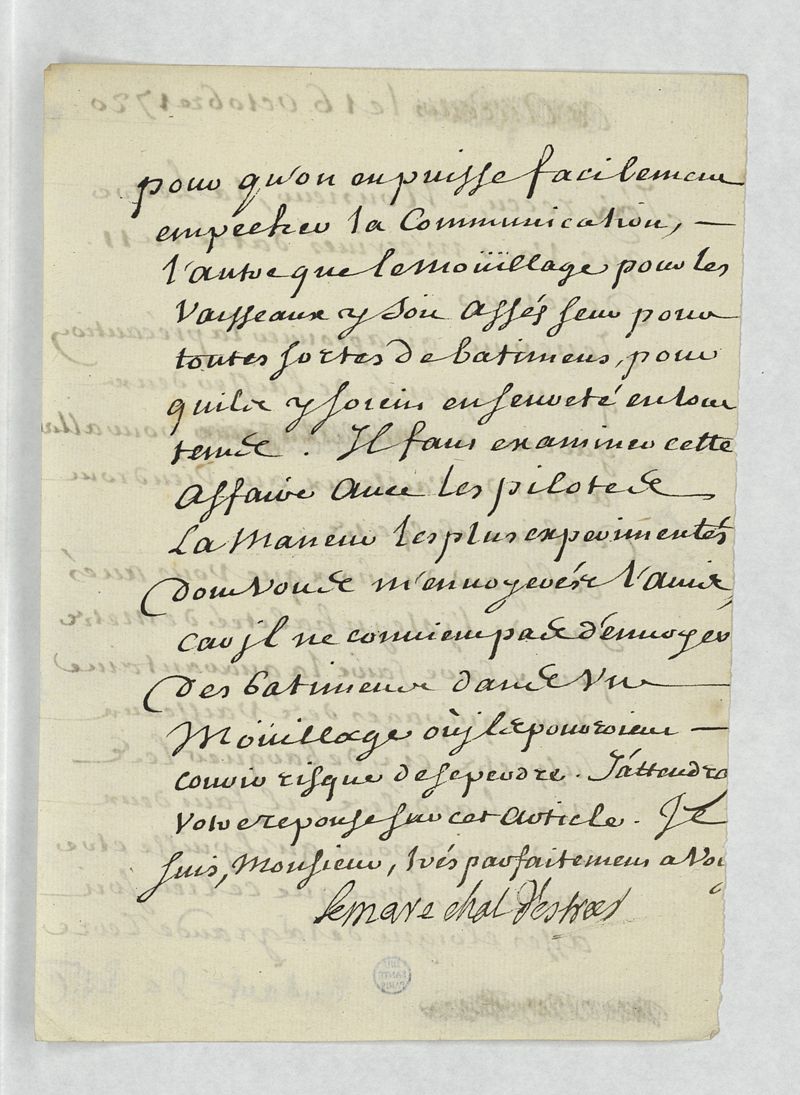 pour qu'on en puisse facilement
empecher la Communication, —
l'autre que le moüillage pour les
Vaisseaux y soit assés seur pour
toutes sortes de batimens, pour
quils y soient en seureté en tout
temps. Il faut examiner cette
affaire avec les pilotes de
La Maneur les plus experimentés
dont Vous m'envoyerés l'avis,
car il ne convient pas d'envoyer
des batimens dans Un
Moüillage où ils pouroient —
courir risque de se perdre. J'attendray
Votre reponse sur cet article. Je
suis, Monsieur, trés parfaitement a Vous
le mare chal d'estrées